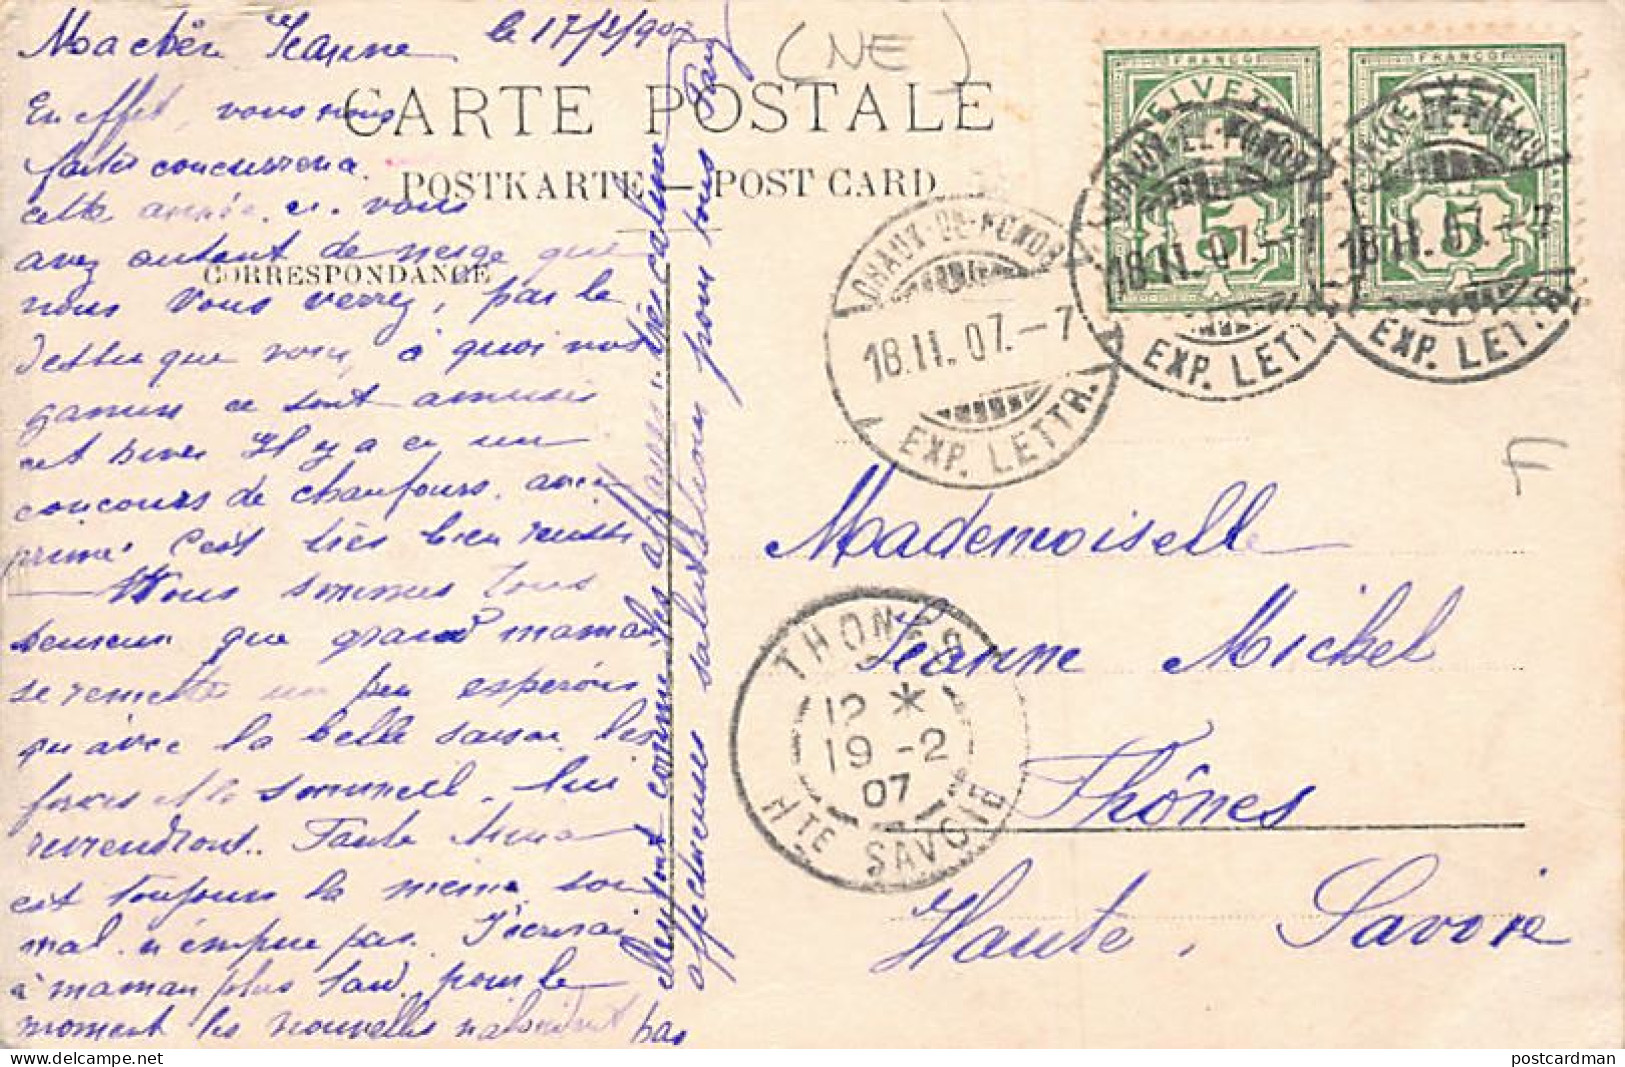 Ma chère Jeanne le 17/2/907
(NE)
CARTE POSTALE
POSTKARTE — POST CARD
CORRESPONDANCE
En effet, vous nous
faites concurrence
cette année. vous
avez autant de neige que
nous Vous verrez, par le
dessin que voici, à quoi nos
gamins se sont amusés
cet hiver Il y a eu un
concours de chauffours. avec
prime. C'est très bien reussi
Nous sommes tous
heureux que grand maman
se remette un peu esperons
qu'avec la belle saison, les
forces et le sommeil, lui
reviendront. Tante Anna
est toujours la même, son
mal n'empire pas. J'écrirai
à maman plus tard, pour le
moment les nouvelles n'abondent pas
sont comme les affaires: très calme
affectueuses salutations pour tous Fany
FRANCO
HELVETIA
5
FRANCO
HELVETIA
5
CHAUX-DE-FONDS
18.II.07.-7
EXP. LETTR.
CHAUX-DE-FONDS
18.II.07.-7
EXP. LETTR.
CHAUX-DE-FONDS
18.II.07.-7
EXP. LETTR.
F
Mademoiselle
Jeanne Michel
Thônes
Haute, Savoie
THONES
12 *
19 -2
07
HTE SAVOIE
postcardman